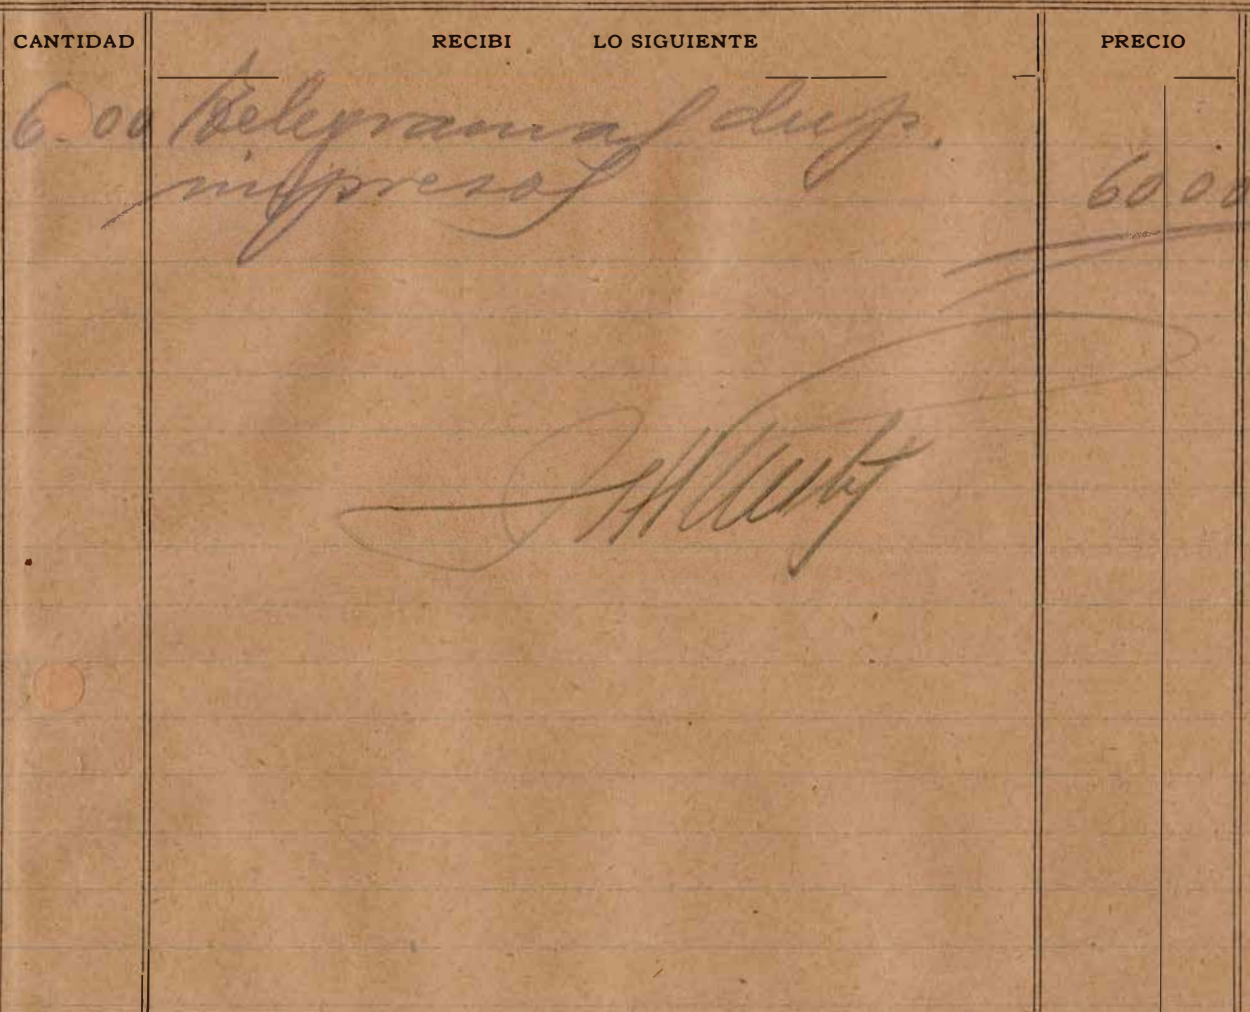 CANTIDAD RECIBI LO SIGUIENTE PRECIO
Telegramas dup.
impresos 60 00